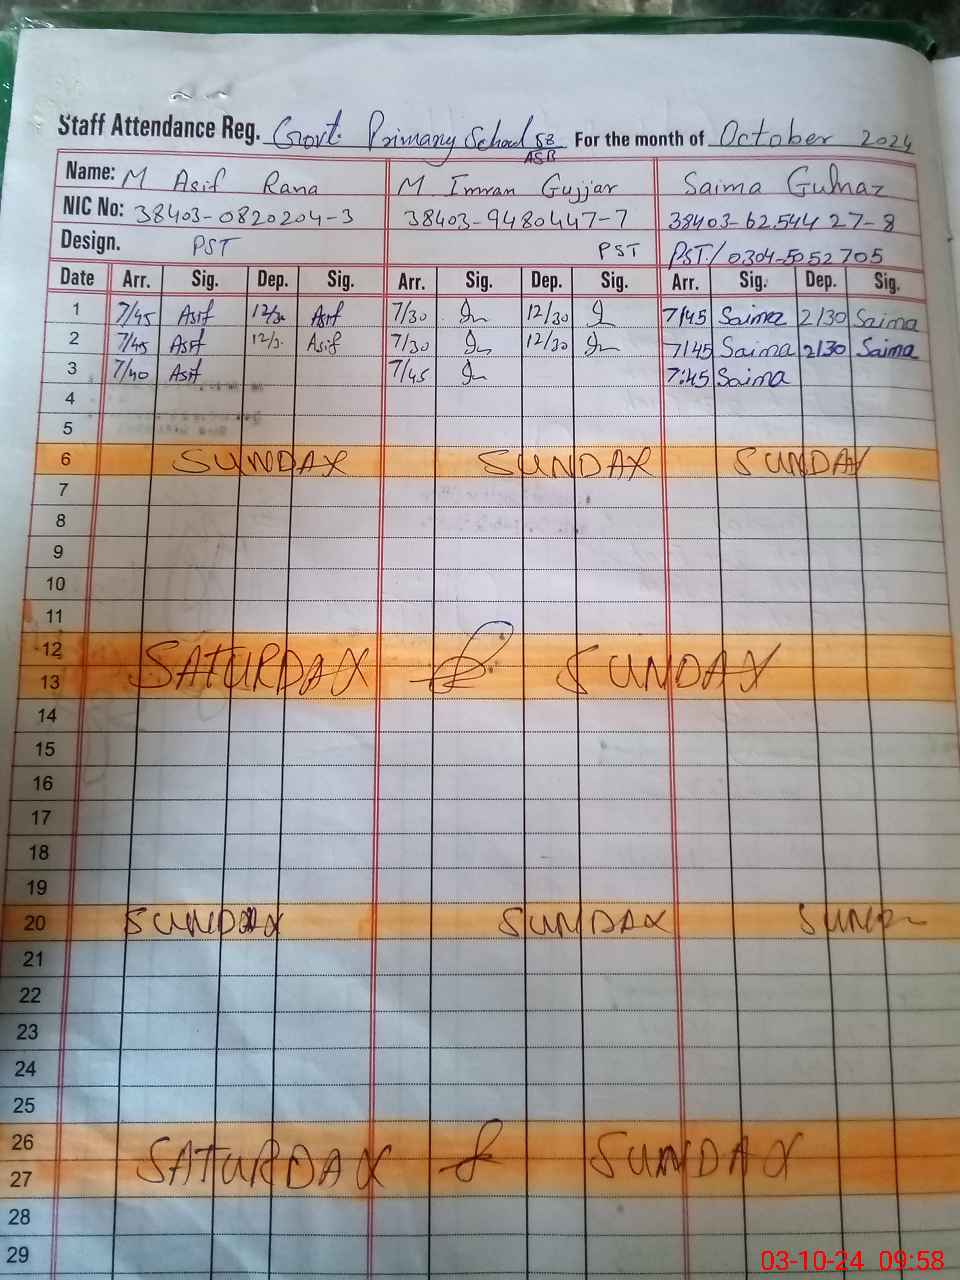 Staff Attendance Reg. Govt. Primary School 58 ASB For the month of October 2024
Name: M Asif Rana M Imran Gujjar Saima Gulnaz
NIC No: 38403-0820204-3 38403-9480447-7 38403-6254427-8
Design. PST PST PST/0304-5052705
Date Arr. Sig. Dep. Sig. Arr. Sig. Dep. Sig. Arr. Sig. Dep. Sig.
1 7/45 Asif 12/30 Asif 7/30 12/30 7/45 Saima 2/30 Saima
2 7/45 Asif 12/3 Asif 7/30 12/30 7/45 Saima 2/30 Saima
3 7/40 Asif 7/45 7:45 Saima
4
5
6 SUNDAY SUNDAY SUNDAY
7
8
9
10
11
12 SATURDAY & SUNDAY
13
14
15
16
17
18
19
20 SUNDAY SUNDAY
21
22
23
24
25
26 SATURDAY & SUNDAY
27
28
29
03-10-24 09:58